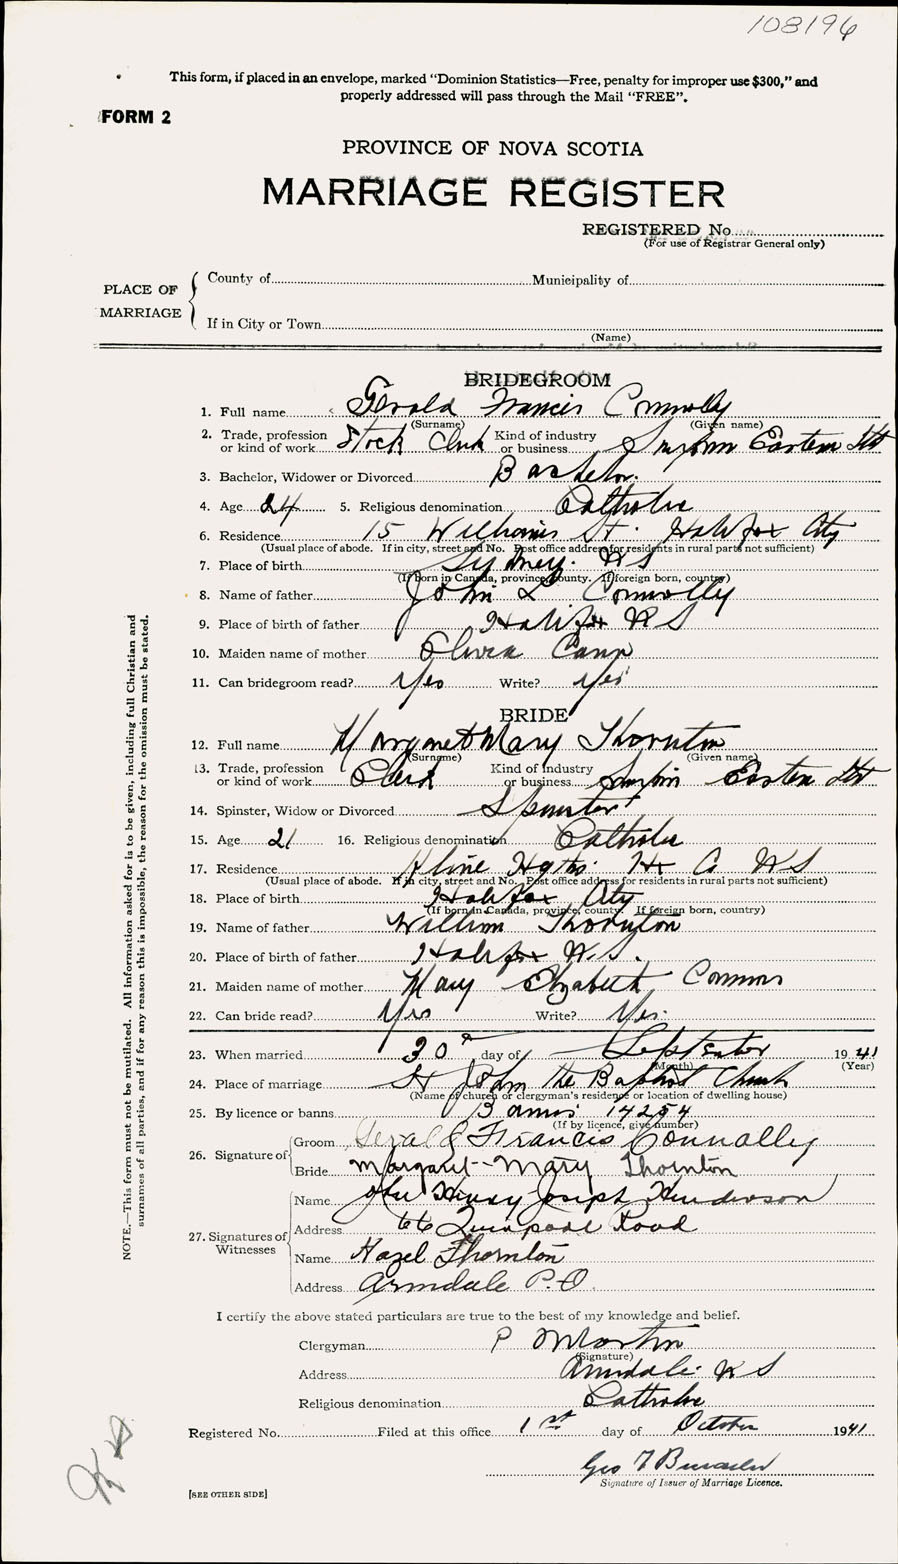 108196
This form, if placed in an envelope, marked "Dominion Statistics—Free, penalty for improper use $300," and
properly addressed will pass through the Mail "FREE".
FORM 2
PROVINCE OF NOVA SCOTIA
MARRIAGE REGISTER
REGISTERED No.
(For use of Registrar General only)
PLACE OF MARRIAGE
County of Municipality of
If in City or Town
(Name)
BRIDEGROOM
1. Full name Gerald Francis Connolly
(Surname) (Given name)
2. Trade, profession or kind of work Stock Clerk Kind of industry or business Eastern
3. Bachelor, Widower or Divorced Bachelor
4. Age 24 5. Religious denomination Catholic
6. Residence 15 Williams St. Halifax City
(Usual place of abode. If in city, street and No. Post office address for residents in rural parts not sufficient)
7. Place of birth Sydney. NS
(If born in Canada, province, county. If foreign born, country)
8. Name of father John L Connolly
9. Place of birth of father Halifax NS
10. Maiden name of mother Olivia
11. Can bridegroom read? Yes Write? Yes
BRIDE
12. Full name Margaret Mary Thornton
(Surname) (Given name)
13. Trade, profession or kind of work Clerk Kind of industry or business Eastern
14. Spinster, Widow or Divorced Spinster
15. Age 21 16. Religious denomination Catholic
17. Residence Kline Hgths. Hx Co NS
(Usual place of abode. If in city, street and No. Post office address for residents in rural parts not sufficient)
18. Place of birth Halifax City
(If born in Canada, province, county. If foreign born, country)
19. Name of father William Thornton
20. Place of birth of father Halifax N.S.
21. Maiden name of mother Mary Elizabeth Connors
22. Can bride read? Yes Write? Yes.
23. When married 30th day of September 1941
(Month) (Year)
24. Place of marriage St John the Baptist Church
(Name of church or clergyman's residence or location of dwelling house)
25. By licence or banns Banns 14254
(If by licence, give number)
26. Signature of
Groom Gerald Francis Connolly
Bride Margaret-Mary Thornton
27. Signatures of Witnesses
Name John Henry Joseph Henderson
Address 66 Quinpool Road
Name Hazel Thornton
Address Armdale P.O.
I certify the above stated particulars are true to the best of my knowledge and belief.
Clergyman P Martin
(Signature)
Address Armdale NS
Religious denomination Catholic
Registered No. Filed at this office 1st day of October 1941
Geo
Signature of Issuer of Marriage Licence.
[SEE OTHER SIDE]
NOTE.—This form must not be mutilated. All information asked for is to be given, including full Christian and
surnames of all parties, and if for any reason this is impossible, the reason for the omission must be stated.